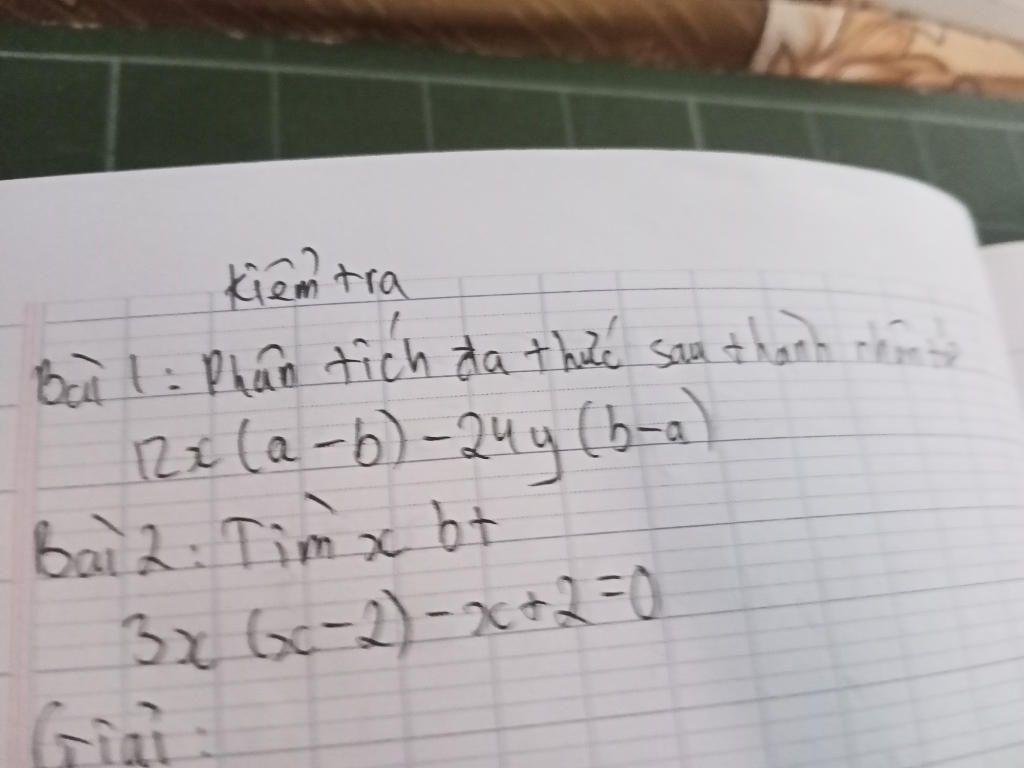 Kiểm tra
Bài 1: Phân tích đa thức sau thành nhân tử
12x(a-b)-24y(b-a)
Bài 2: Tìm x bt
3x(x-2)-x+2=0
Giải: